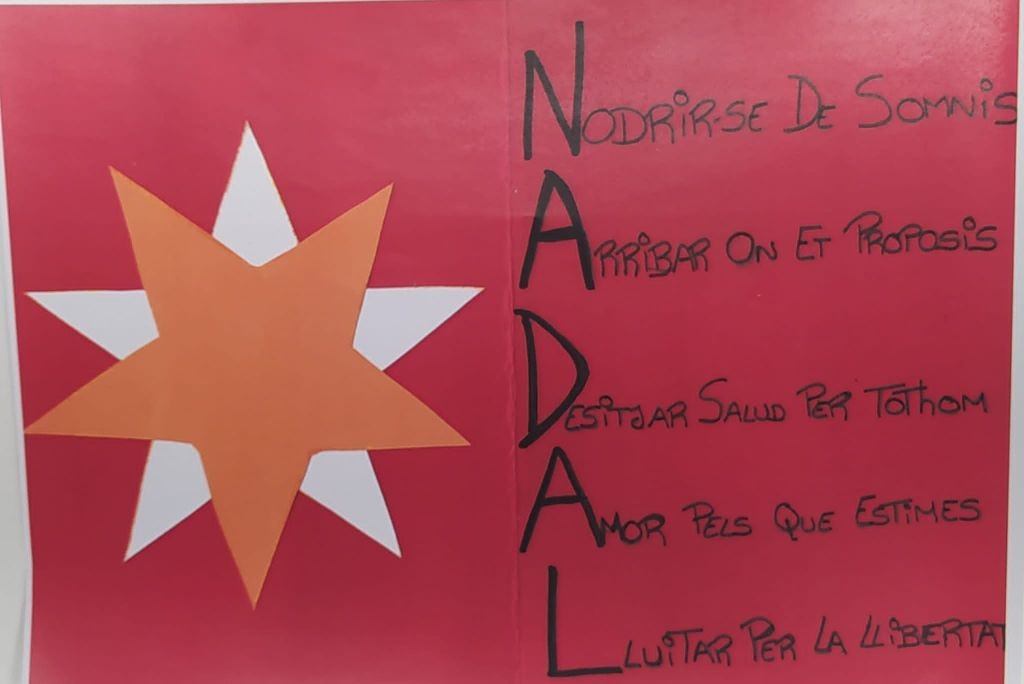 NODRIR-SE DE SOMNIS
ARRIBAR ON ET PROPOSIS
DESITJAR SALUD PER TOTHOM
AMOR PELS QUE ESTIMES
LLUITAR PER LA LLIBERTAT